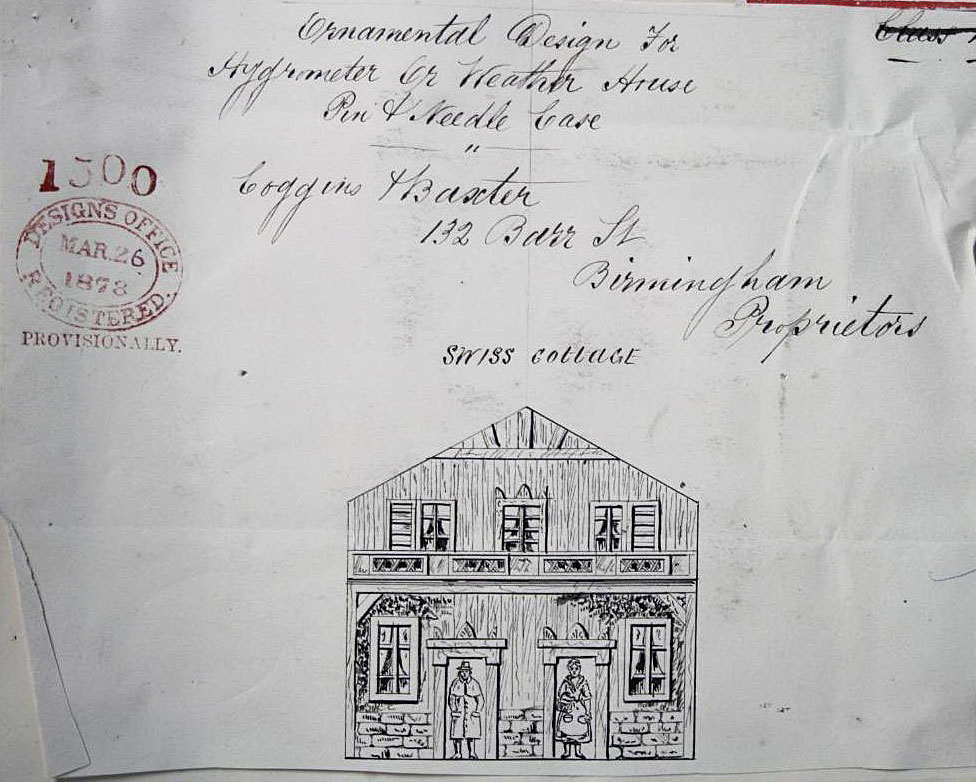 Ornamental Design For
Hygrometer Or Weather House
Pin & Needle Case
"
Coggins & Baxter
132 Barr St
Birmingham
Proprietors
1500
DESIGNS OFFICE
MAR. 26
1878
REGISTERED.
PROVISIONALLY.
SWISS COTTAGE
Class